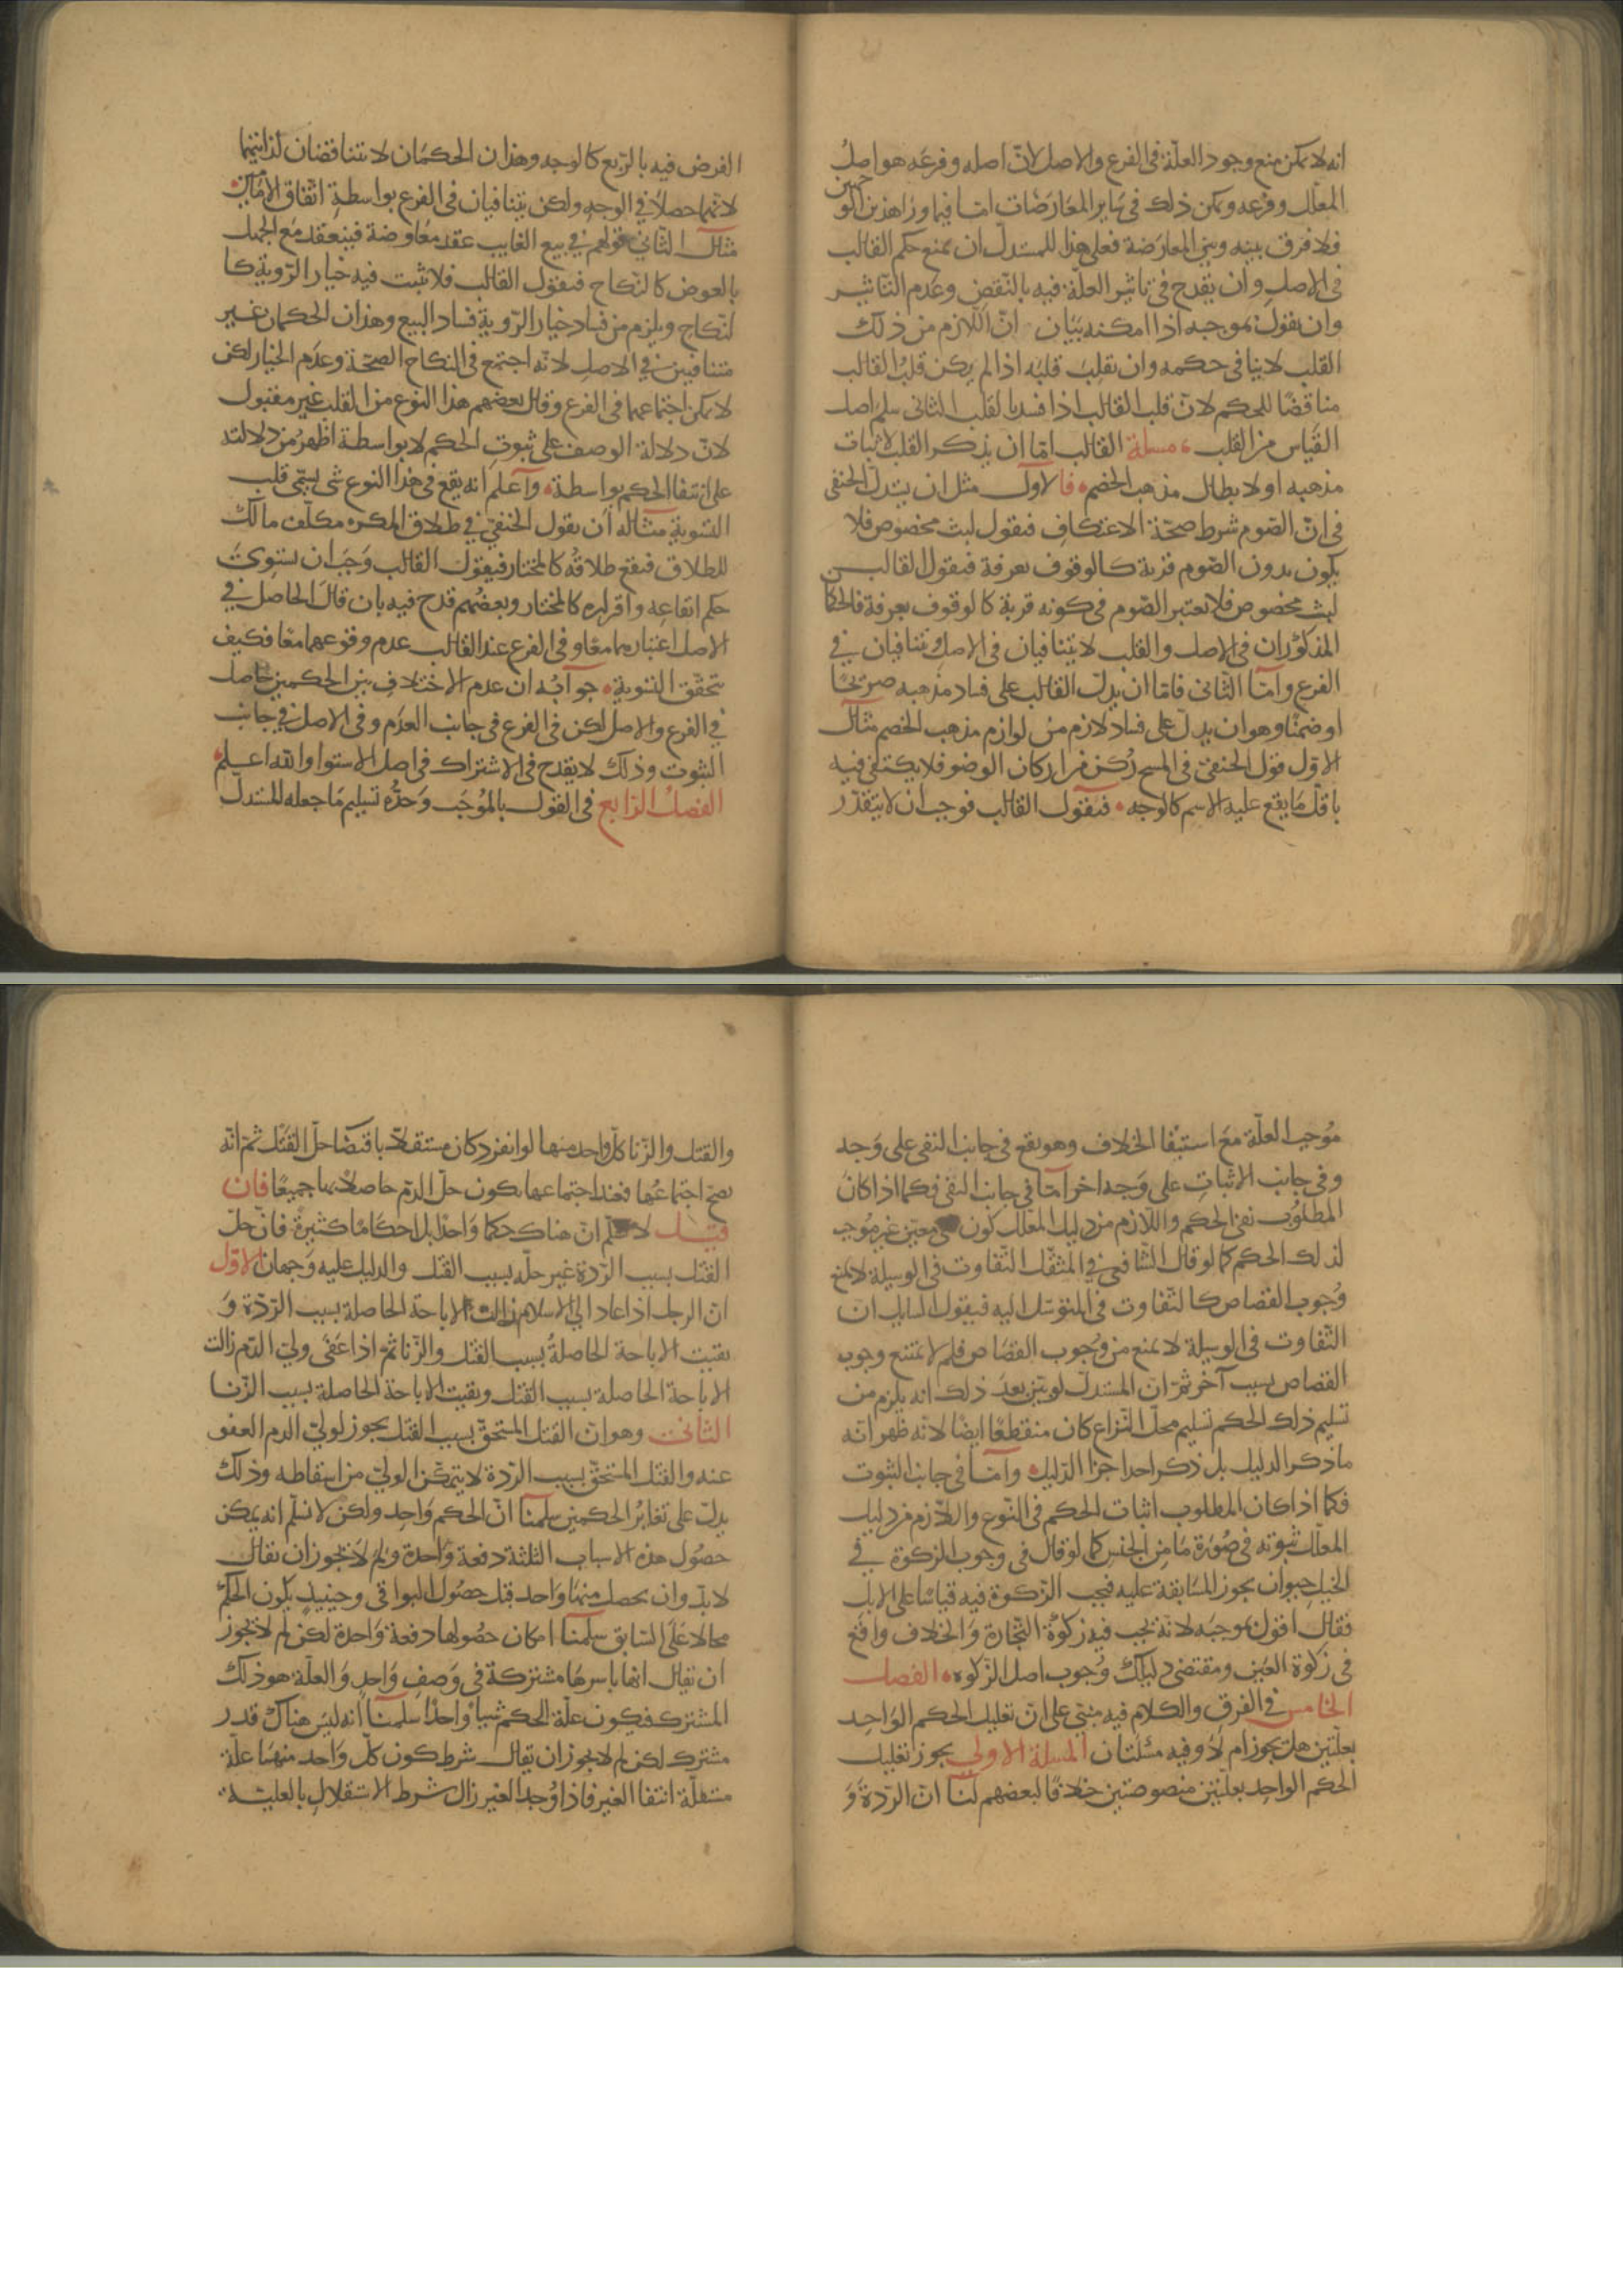 انه لا يمكن منع وجود العلّة فى الفرع والاصل لانّ اصله وفرعه هو اصل
المعلّل وفرعه ويمكن ذلك فى ساير المعارضات امّا فيما وراهذين الوجهين
فلا فرق بينه وبين المعارضة فعلى هذا للمستدلّ ان يمنع حكم القالب
فى الاصل وان يقدح فى تاثير العلّة فيه بالنّقض وعدم التّاثير
وان يقول بموجبه اذا امكنه بيان انّ اللازم من ذلك
القلب لا ينافى حكمه وان يقلب قلبه اذا لم يكن قلب القالب
مناقضا للحكم لانّ قلب القالب اذا فسد بالقلب الثانى سلم اصل
القياس من القلب مسلة القالب امّا ان يذكر القلب لاثبات
مذهبه او لابطال مذهب الخصم فالاول مثل ان يستدلّ الحنفى
فى انّ الصّوم شرط صحّة الاعتكاف فيقول لبث مخصوص فلا
يكون بدون الصّوم قربة كالوقوف بعرفة فيقول القالب
لبث مخصوص فلا يعتبر الصّوم فى كونه قربة كالوقوف بعرفة فالحكما
المذكوران فى الاصل والقلب لا يتنافيان فى الاصل ويتنافيان فى
الفرع وامّا الثّانى فامّا ان يدلّ القالب على فساد مذهبه صريحًا
او ضمنًا وهو ان يدلّ على فساد لازم من لوازم مذهب الخصم مثال
الاوّل قول الحنفىّ فى المسح ركن من اركان الوضو فلا يكتفى فيه
باقلّ ما يقع عليه الاسم كالوجه فيقول القالب فوجب ان لا يتقدّر
الفرض فيه بالرّبع كالوجه وهذان الحكمان لا يتناقضان لذاتيهما
لانّهما حصلا فى الوجه ولكن يتنافيان فى الفرع بواسطة اتّفاق الامامين
مثال الثّانى قولهم فى بيع الغايب عقد معاوضة فينعقد مع الجهل
بالعوض كالنّكاح فيقول القالب فلا تثبت فيه خيار الرّوية كا
لنّكاح ويلزم من فساد خيار الرّوية فساد البيع وهذان الحكمان غير
متنافيين فى الاصل لانّه اجتمع فى النّكاح الصّحّة وعدم الخيار لكن
لا يمكن اجتماعهما فى الفرع وقال بعضهم هذا النوع من القلب غير مقبول
لانّ دلالة الوصف على ثبوت الحكم لا بواسطة اظهر من دلالته
على انتفا الحكم بواسطة واعلم انه يقع فى هذا النوع شى يسمّى قلب
التسوية مثاله ان يقول الحنفىّ فى طلاق المكره مكلّف مالك
للطلاق فيقع طلاقه كالمختار فيقول القالب وجب ان يستوى
حكم ايقاعه واقراره كالمختار وبعضهم قدح فيه بان قال الحاصل فى
الاصل اعتبارهما معًا وفى الفرع عند القالب عدم وقوعهما معًا فكيف
يتحقّق التسوية جوابه ان عدم الاختلاف بين الحكمين حاصل
فى الفرع والاصل لكن فى الفرع فى جانب العدم وفى الاصل فى جانب
الثبوت وذلك لا يقدح فى الاشتراك فى اصل الاستوا والله اعلم
الفصل الرّابع فى القول بالموجب وحدّه تسليم ما جعله المستدلّ
موجب العلّة مع استبقا الخلاف وهو يقع فى جانب النفى على وجه
وفى جانب الاثبات على وجه اخر امّا فى جانب النفى فكما اذا كان
المطلوب نفى الحكم واللّازم من دليل المعلّل كون شى معيّن غير موجب
لذلك الحكم كما لو قال الشّافعىّ فى المثقّل التّفاوت فى الوسيلة لا يمنع
وجوب القصاص كالتّفاوت فى المتوسّل اليه فيقول السايل ان
التّفاوت فى الوسيلة لا يمنع من وجوب القصاص فلم لا يمتنع وجوب
القصاص بسبب آخر ثمّ ان المستدلّ لو بيّن بعد ذلك انه يلزم من
تسليم ذلك الحكم تسليم محلّ النّزاع كان منقطعًا ايضًا لانه ظهر انّه
ما ذكر الدليل بل ذكر احد اجزا الدّليل وامّا فى جانب الثبوت
فكما اذا كان المطلوب اثبات الحكم فى النّوع واللّازم من دليل
المعلّل ثبوته فى صورة ما من الجنس كما لو قال فى وجوب الزكوة فى
الخيل حيوان يجوز المسابقة عليه فيجب الزّكوة فيه قياسًا على الابل
فقال اقول بموجبه لانه يجب فيه زكوة التّجارة والخلاف واقع
فى زكوة العين ومقتضى دليلك وجوب اصل الزّكوة الفصل
الخامس فى الفرق والكلام فيه مبنىّ على انّ تعليل الحكم الواحد
بعلّتين هل يجوز ام لا وفيه مسئلتان المسلة الاولى يجوز تعليل
الحكم الواحد بعلّتين منصوصتين خلافًا لبعضهم لنا انّ الرّدة و
والقتل والزّنا كلّ واحد منها لو انفرد كان مستقلّا باقتضا حلّ القتل ثمّ انّه
يصحّ اجتماعها فعند اجتماعها يكون حلّ الدّم حاصلًا بها جميعًا فان
قيل لا نسلّم انّ هناك حكما واحدًا بل احكامًا كثيرة فانّ حلّ
القتل بسبب الرّدة غير حلّه بسبب القتل والدليل عليه وجهان الاوّل
انّ الرجل اذا عاد الى الاسلام زالت الاباحة الحاصلة بسبب الرّدّة و
بقيت الاباحة الحاصلة بسبب القتل والزّنا ثمّ اذا عفى ولىّ الدّم زالت
الاباحة الحاصلة بسبب القتل وبقيت الاباحة الحاصلة بسبب الزّنا
الثانى وهو انّ القتل المستحقّ بسبب القتل يجوز لولىّ الدم العفو
عنه والقتل المستحقّ بسبب الرّدة لا يتمكّن الولىّ من اسقاطه وذلك
يدلّ على تغاير الحكمين سلّمنا انّ الحكم واحد ولكن لا نسلّم انه يمكن
حصول هذه الاسباب الثلثة دفعة واحدة ولم لا يجوز ان يقال
لا بدّ وان يحصل منها واحد قبل حصول البواقى وحينيذ يكون الحكم
محالا على السّابق سلّمنا امكان حصولها دفعة واحدة لكن لم لا يجوز
ان يقال انها باسرها مشتركة فى وصف واحد والعلّة هو ذلك
المشترك فيكون علّة الحكم شيا واحدًا سلّمنا انه ليس هناك قدر
مشترك لكن لم لا يجوز ان يقال شرط كون كلّ واحد منها علّة
مستقلّة انتفا الغير فاذا وجد الغير زال شرط الاستقلال بالعليّة